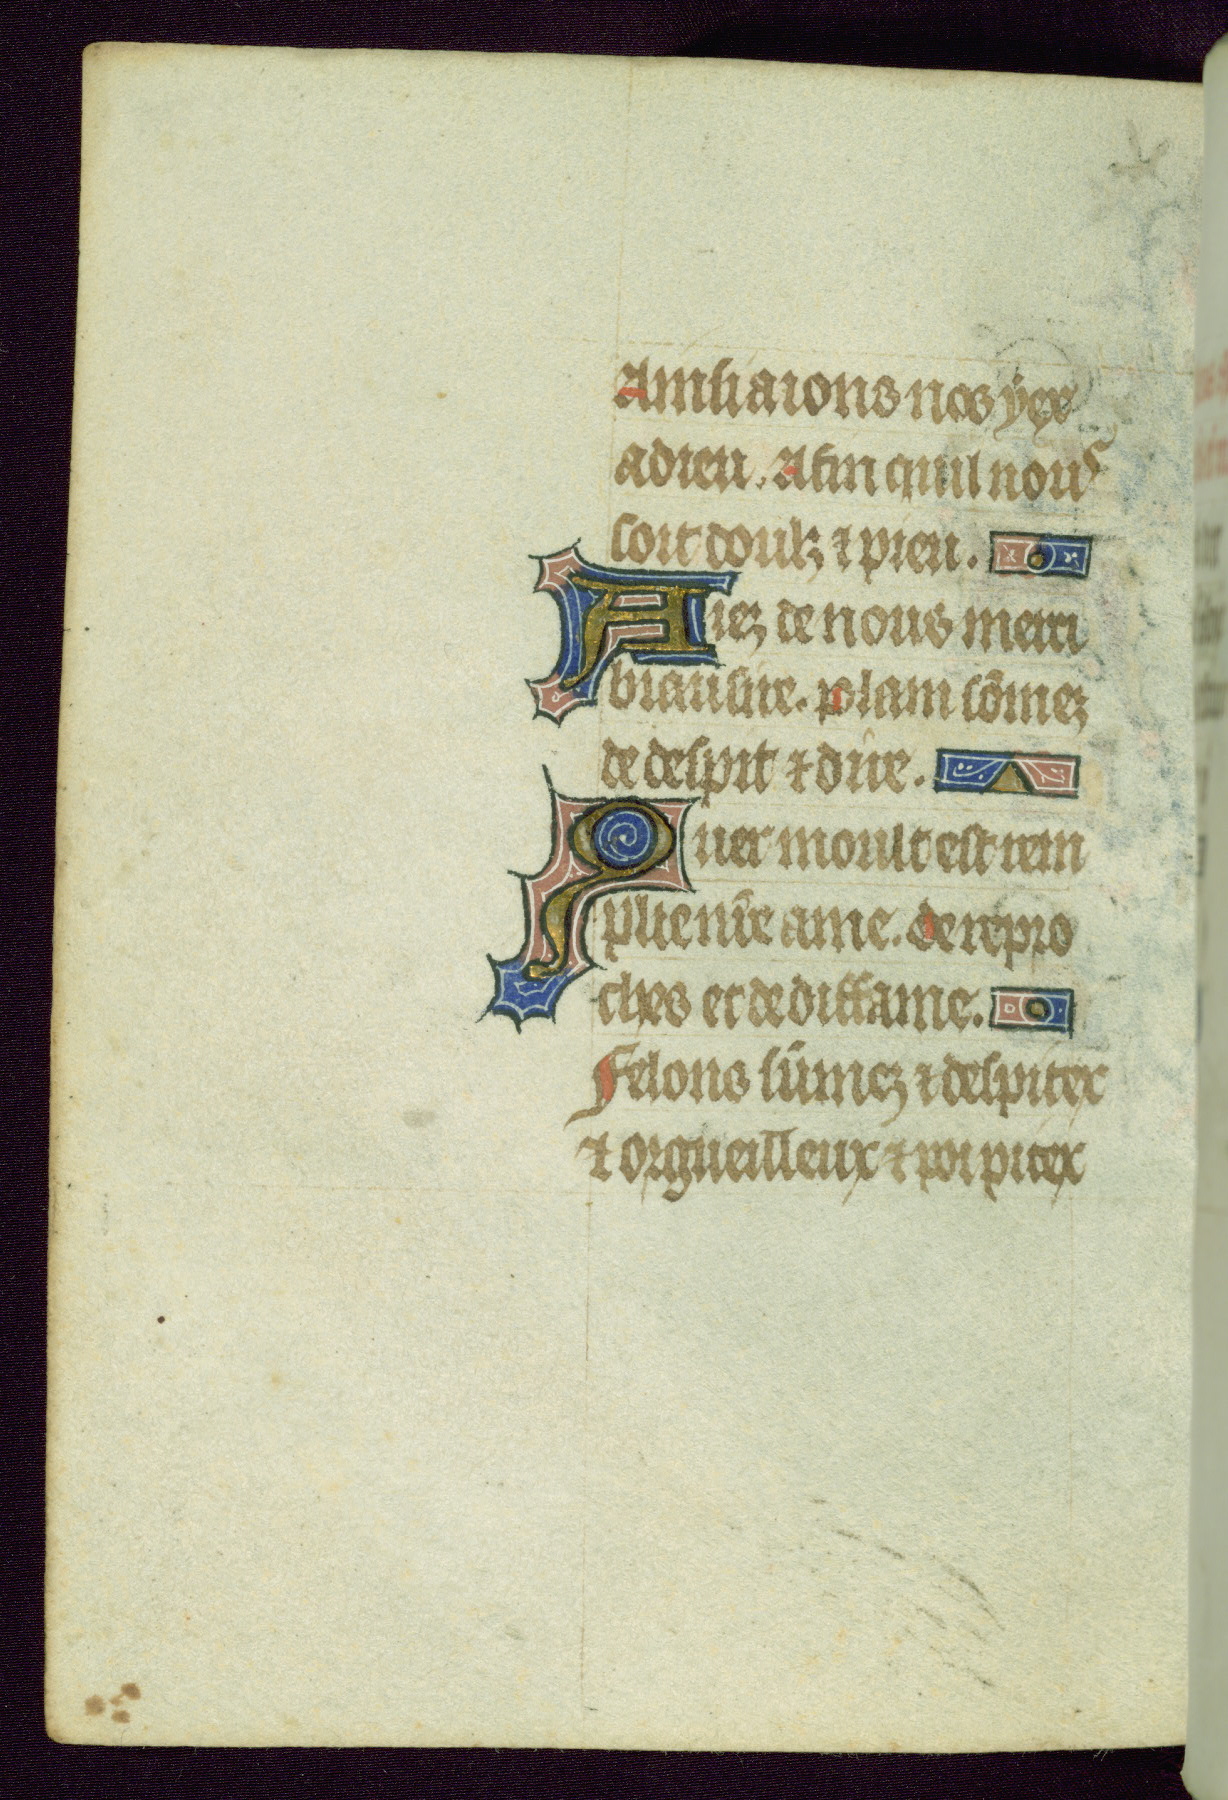 Ainsi aions nos yex
a dieu. Afin quil nous
soit doulz ⁊ pieu.
Aiez de nous merci
biau sire. plain sōmez
de despit ⁊ dire.
Quer moult est rem
plie nr̄e ame. de repro
ches et de diffame.
Felons sūmez ⁊ despitex
⁊ orgueilleux ⁊ poi pitex